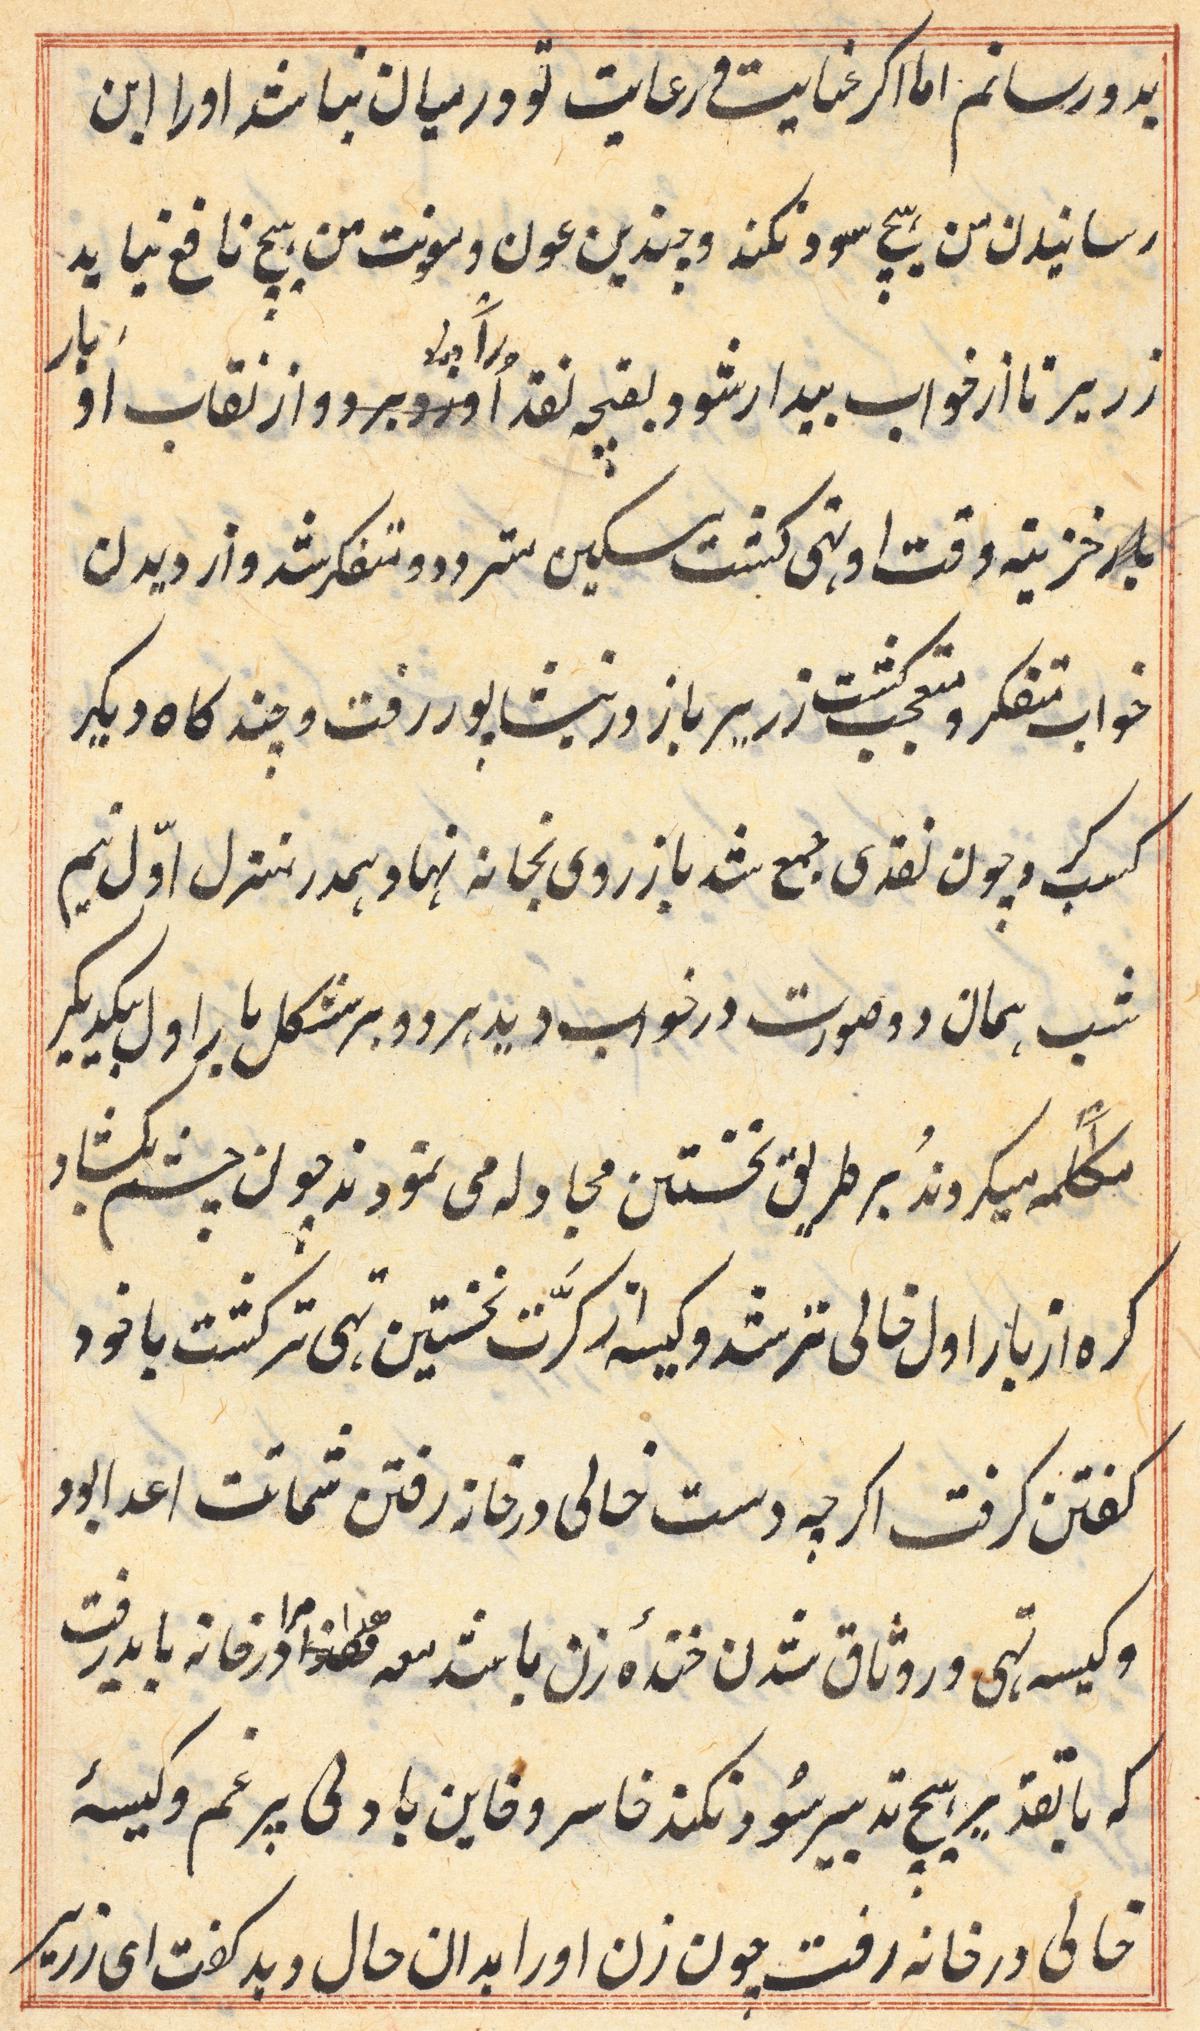 بدو رسانم اما اکر عنایت و رعایت تو در میان نباشد او را این
رسانیدن من هیچ سود نکند و چندین عون و مونت من هیچ نافع نیاید
زریر تا از خواب بیدار شود بقچه نقد او را دزد برد و از نقاب او بار
خزینه وقت او تهی کشت مسکین متردد و متفکر شد و از دیدن
خواب متفکر و متعجب کشت زریر باز در نیشاپور رفت و چند کاه دیکر
کسب کرد چون نقدی جمع شد باز روی بخانه نهاد همدر منزل اوّل نیم
شب همان دو صورت در خواب دید هر دو بر شکل بار اول بیکدیکر
مکالمه میکردند بر طریق نخستین مجادله می نمودند چون چشم بکشاد
کره از بار اول خالی تر شد و کیسه از کرّت نخستین تهی تر کشت با خود
کفتن کرفت اکر چه دست خالی در خانه رفتن شماتت اعدا بود
و کیسه تهی در وثاق شدن خندهٔ زن باشد مرا در خانه باید رفت
که با تقدیر هیچ تدبیر سود نکند خاسر و خاین با دلی پر غم و کیسهٔ
خالی در خانه رفت چون زن او را بدان حال دید کفت ای زریر